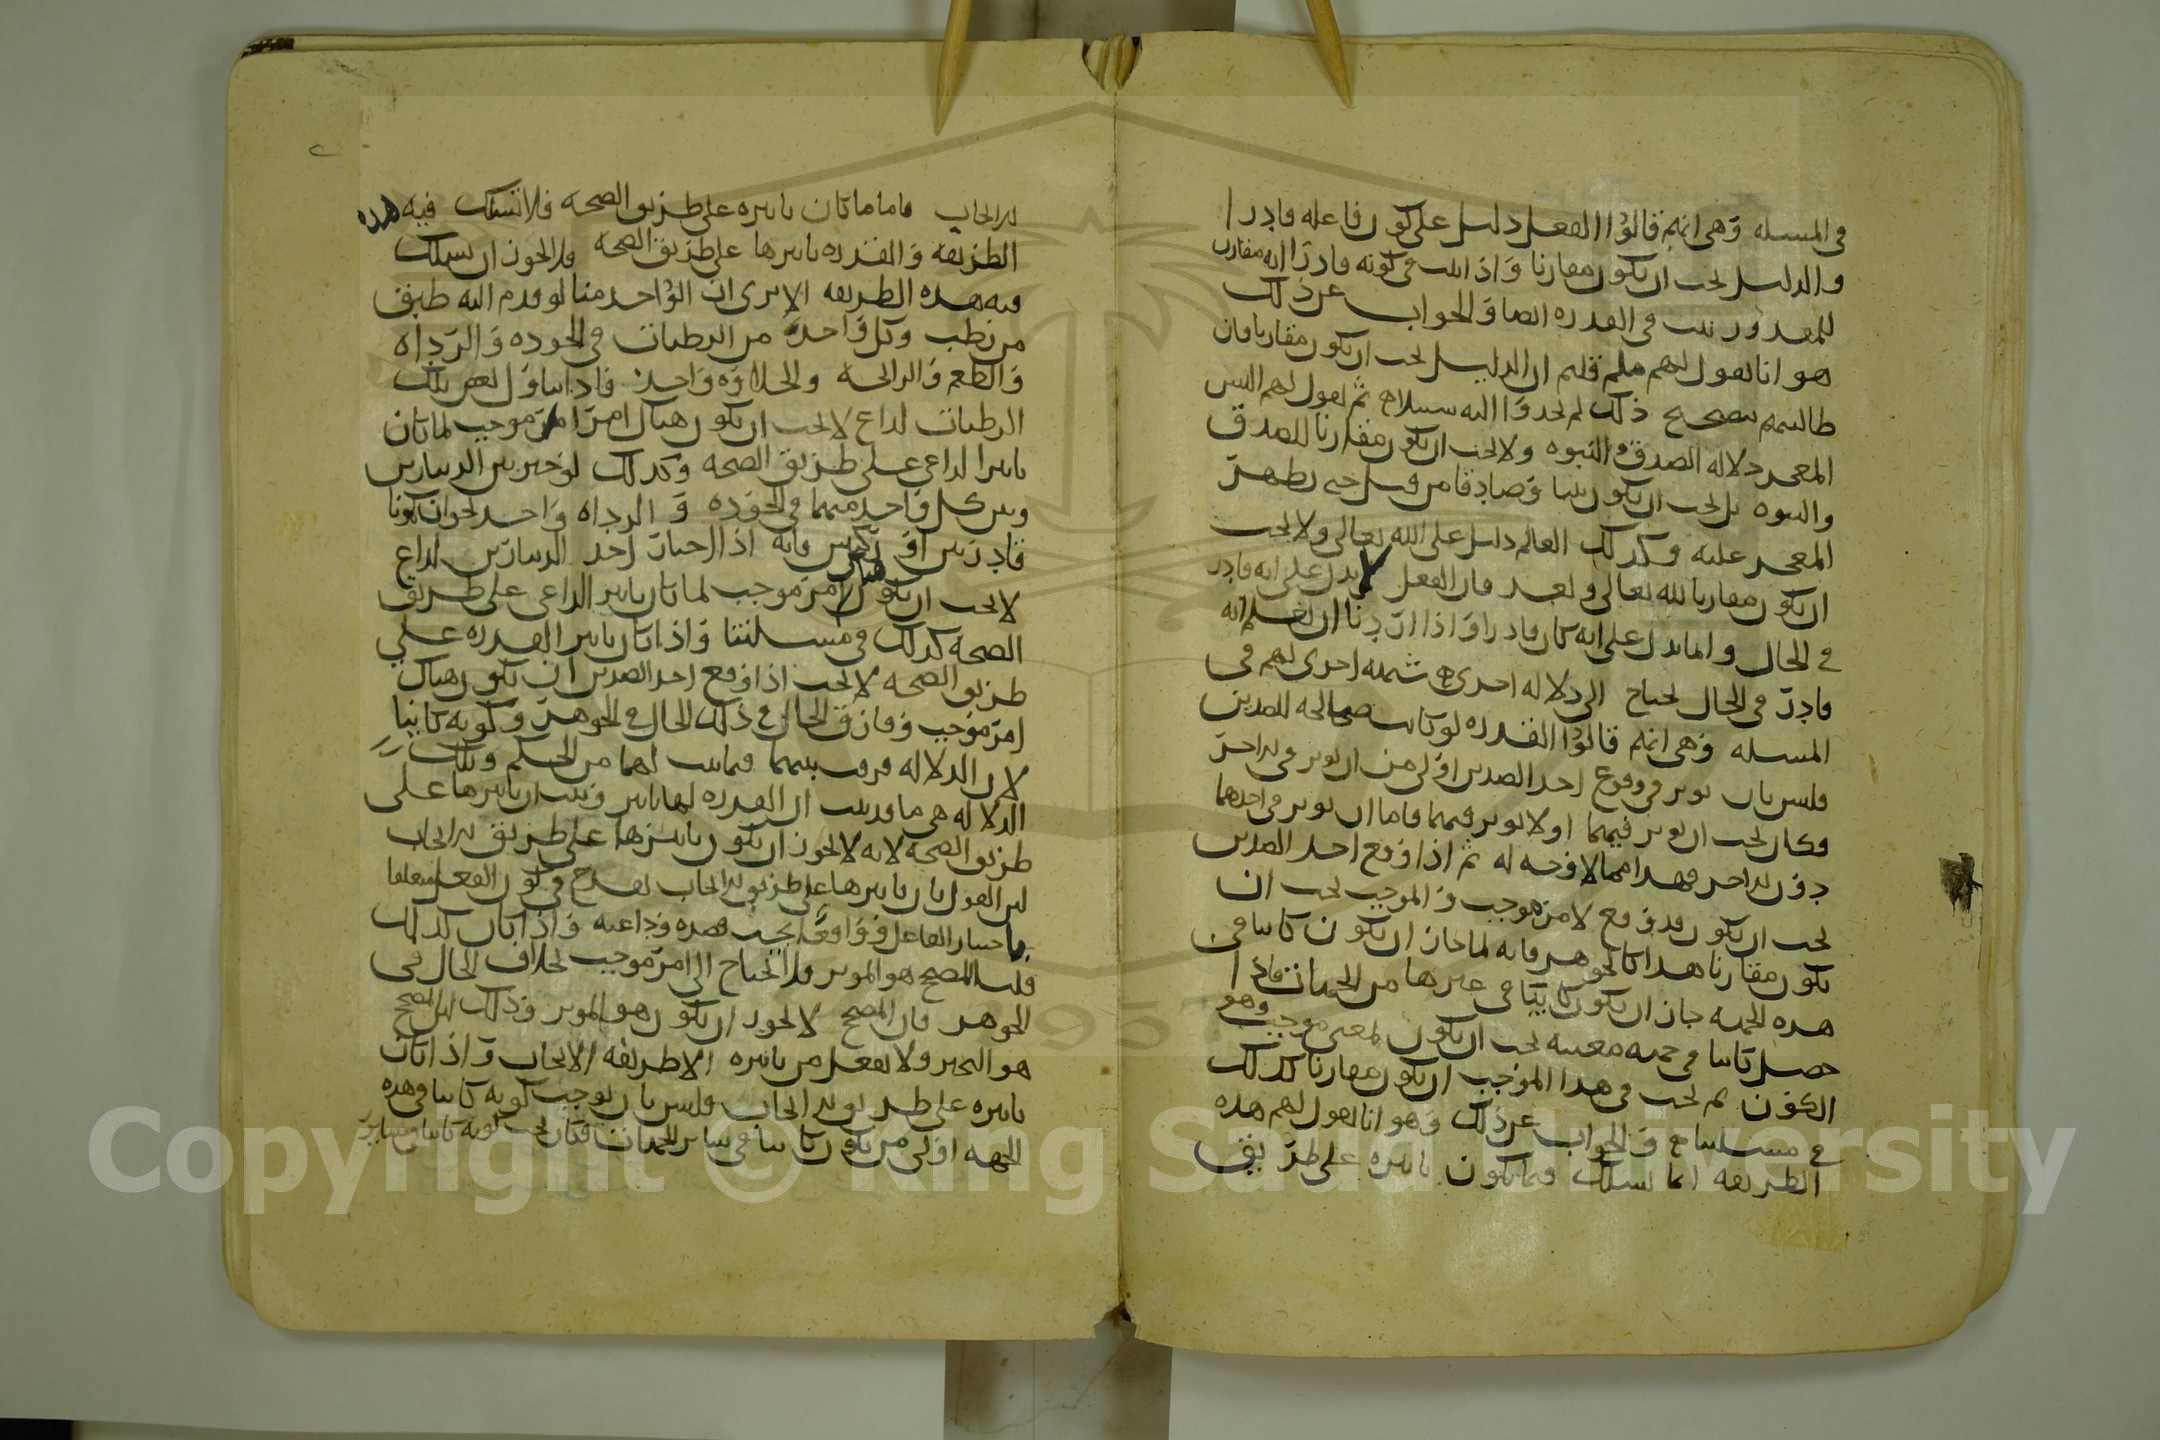 في المسله وهي انهم قالوا الفعل دليل على كون فاعله قادرا
والدليل يجب ان يكون مقارنا واذا ثبت في كونه قادرا انه مقارن
للمقدور ثبت في القدره ايضا والجواب عن ذلك
هو انا نقول لهم فلم قلتم ان الدليل يجب ان يكون مقارنا فان
طالبتهم بتصحيح ذلك لم يجدوا اليه سبيلا ثم نقول لهم اليس
المعجز دلاله الصدق والنبوه ولا يجب ان يكون مقارنا للصدق
والنبوه بل يجب ان يكون نبيا وصادقا من قبل حتى يظهر
المعجز عليه وكذلك العالم دليل على الله تعالى ولا يجب
ان يكون مقارنا لله تعالى وبعد فان الفعل لا يدل على انه قادر
في الحال وانما يدل على انه كان قادرا واذا اردنا ان نعلم انه
قادر في الحال يحتاج الى دلاله اخرى شبهه اخرى لهم في
المسله وهي انهم قالوا القدره لو كانت صالحه للضدين
فليس بان يوثر في وقوع احد الضدين اولى من ان يوثر في الاخر
فكان يجب ان يوثر فيهما او لا يوثر فيهما فاما ان يوثر في احدهما
دون الاخر فهذا مما لا وجه له ثم اذا وقع احد الضدين
يجب ان يكون قد وقع لامر موجب والموجب يجب ان
يكون مقارنا هذا كالجوهر فانه لما جاز ان يكون كاينا في
هذه الجهه جاز ان يكون كاينا في غيرها من الجهات فاذا
حصل كاينا في جهه معينه يجب ان يكون لمعنى موجب وهو
الكون ثم يجب في هذا الموجب ان يكون مقارنا كذلك
في مسلتنا والجواب عن ذلك وهو انا نقول لهم هذه
الطريقه انما تسلك فيما يكون تاثيره على طريق
الايجاب فاما ما كان تاثيره على طريق الصحه فلا تسلك فيه هذه
الطريقه والقدره تاثيرها على طريق الصحه فلا يجوز ان تسلك
فيه هذه الطريقه الا يرى ان الواحد منا لو قدم اليه طبق
من رطب وكل واحده من الرطبات في الجوده والرداه
والطعم والرايحه والحلاوه واحد فاذا تناول بعض تلك
الرطبات لداع لا يجب ان يكون هناك امر موجب لما كان
تاثير الداعي على طريق الصحه وكذلك لو خير بين الدينارين
وبين كل واحد منهما في الجوده والرداه واحد يجوز ان يكونا
فانه اذا اختار احد الدينارين لداع
لا يجب ان يكون هناك امر موجب لما كان تاثير الداعي على طريق
الصحه كذلك في مسلتنا واذا كان تاثير القدره على
طريق الصحه لا يجب اذا وقع احد الضدين ان يكون هناك
امر موجب وفارق الحال في ذلك الحال في الجوهر وكونه كاينا
لان الدلاله فرقت بينهما فيما ثبت لهما من الحكم وتلك
الدلاله هي ما قد ثبت ان القدره لها تاثير وثبت ان تاثيرها على
طريق الصحه لانه لا يجوز ان يكون تاثيرها على طريق الايجاب
لان القول بان تاثيرها على طريق الايجاب يقدح في كون الفعل متعلقا
باختيار الفاعل وواقعا بحسب قصده وداعيه واذا كان كذلك
قلنا المصحح هو الموثر فلا يحتاج الى امر موجب بخلاف الحال في
الجوهر فان المصحح لا يجوز ان يكون هو الموثر وذلك لان المصحح
هو التحيز ولا يعقل من تاثيره الا طريقه الايجاب واذا كان
تاثيره على طريق الايجاب فليس بان يوجب كونه كاينا في هذه
الجهه اولى من يكون كاينا في ساير الجهات فكان يجب كونه كاينا في ساير